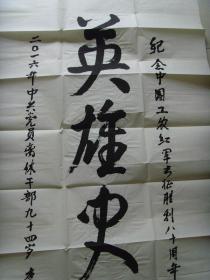 纪念中国工农红军长征胜利八十周年
英雄史
二〇一六年中共党员离休干部九十四岁